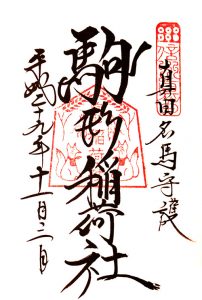 真田名馬守護
駒形稲荷社
平成二十九年十一月三日